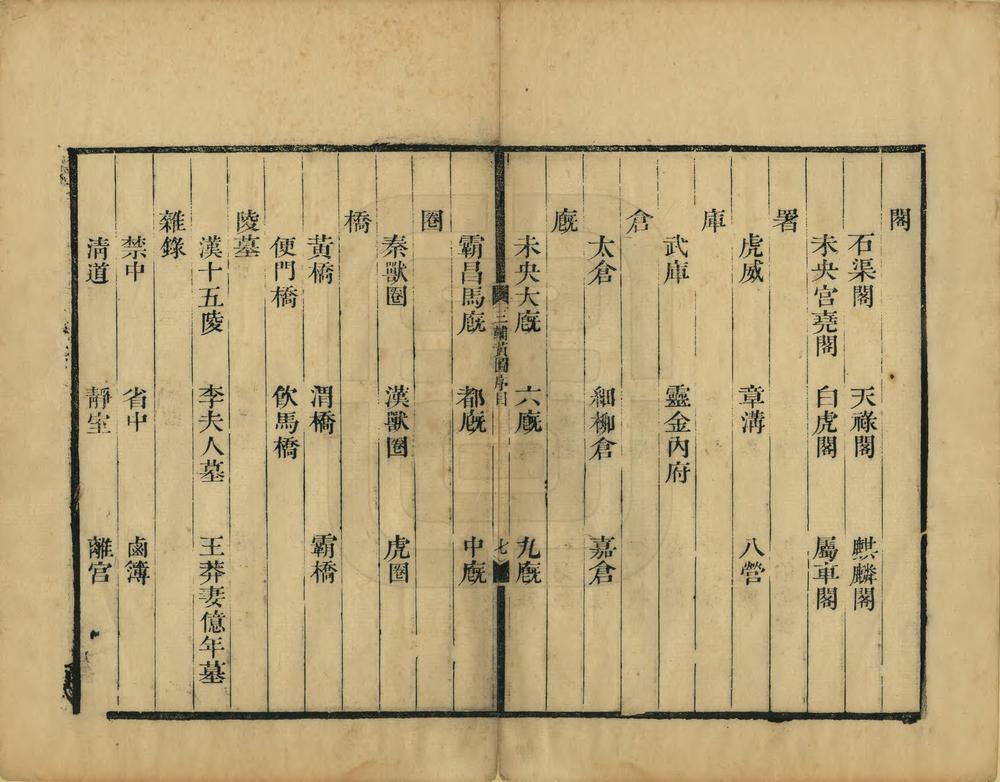 閣
石渠閣　天祿閣　麒麟閣
未央宮堯閣　白虎閣　屬車閣
署
虎威　章溝　八營
庫
武庫　靈金內府
倉
太倉　細柳倉　嘉倉
廐
未央大廐　六廐　九廐
三輔黃圖序目　七
霸昌馬廐　都廐　中廐
圈
秦獸圈　漢獸圈　虎圈
橋
黃橋　渭橋　霸橋
便門橋　飲馬橋
陵墓
漢十五陵　李夫人墓　王莽妻億年墓
雜錄
禁中　省中　鹵簿
清道　靜室　離宮